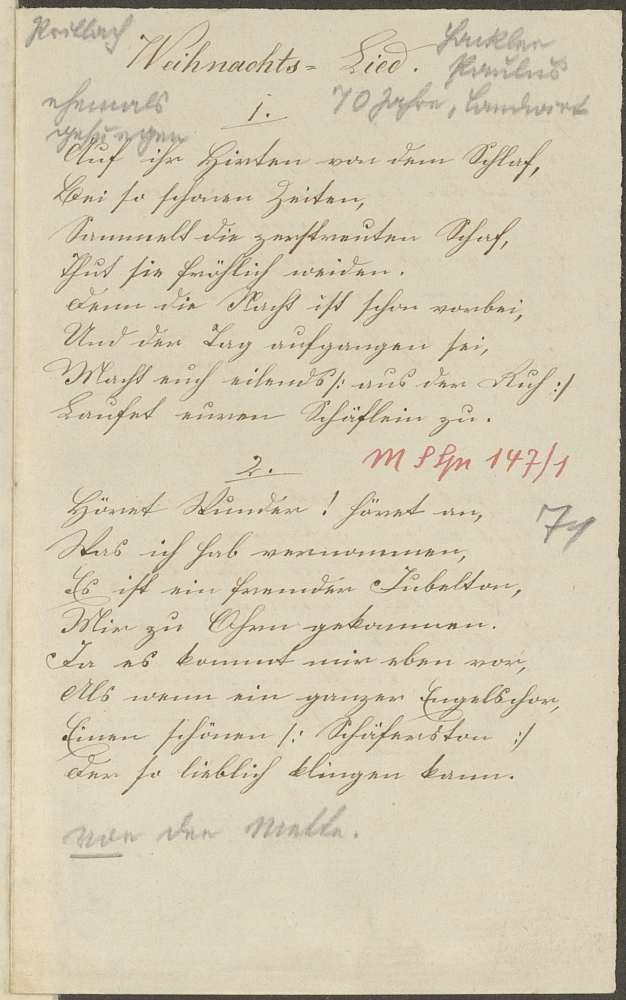 Weihnachts= Lied.
Paulus
ehemals
70 Jahre, Landwirt
gesungen
1.
Auf ihr Hirten von dem Schlaf,
Bei so schönen Zeiten,
Sammelt die zerstreuten Schaf,
Thut sie fröhlich weiden.
Denn die Nacht ist schon vorbei,
Und der Tag aufgangen sei,
Macht euch eilends /: aus der Ruh :/
Laufet euren Schäflein zu.
2.
M 147/1
Höret Wunder! höret an,
Was ich hab vernommen,
Es ist ein fremder Jubelton,
Mir zu Ohrn gekommen.
Ja es kommt mir eben vor,
Als wenn ein ganzer Engelschor,
Einen schönen /: Schäferston :/
Der so lieblich klingen kann.
vor der Mette.